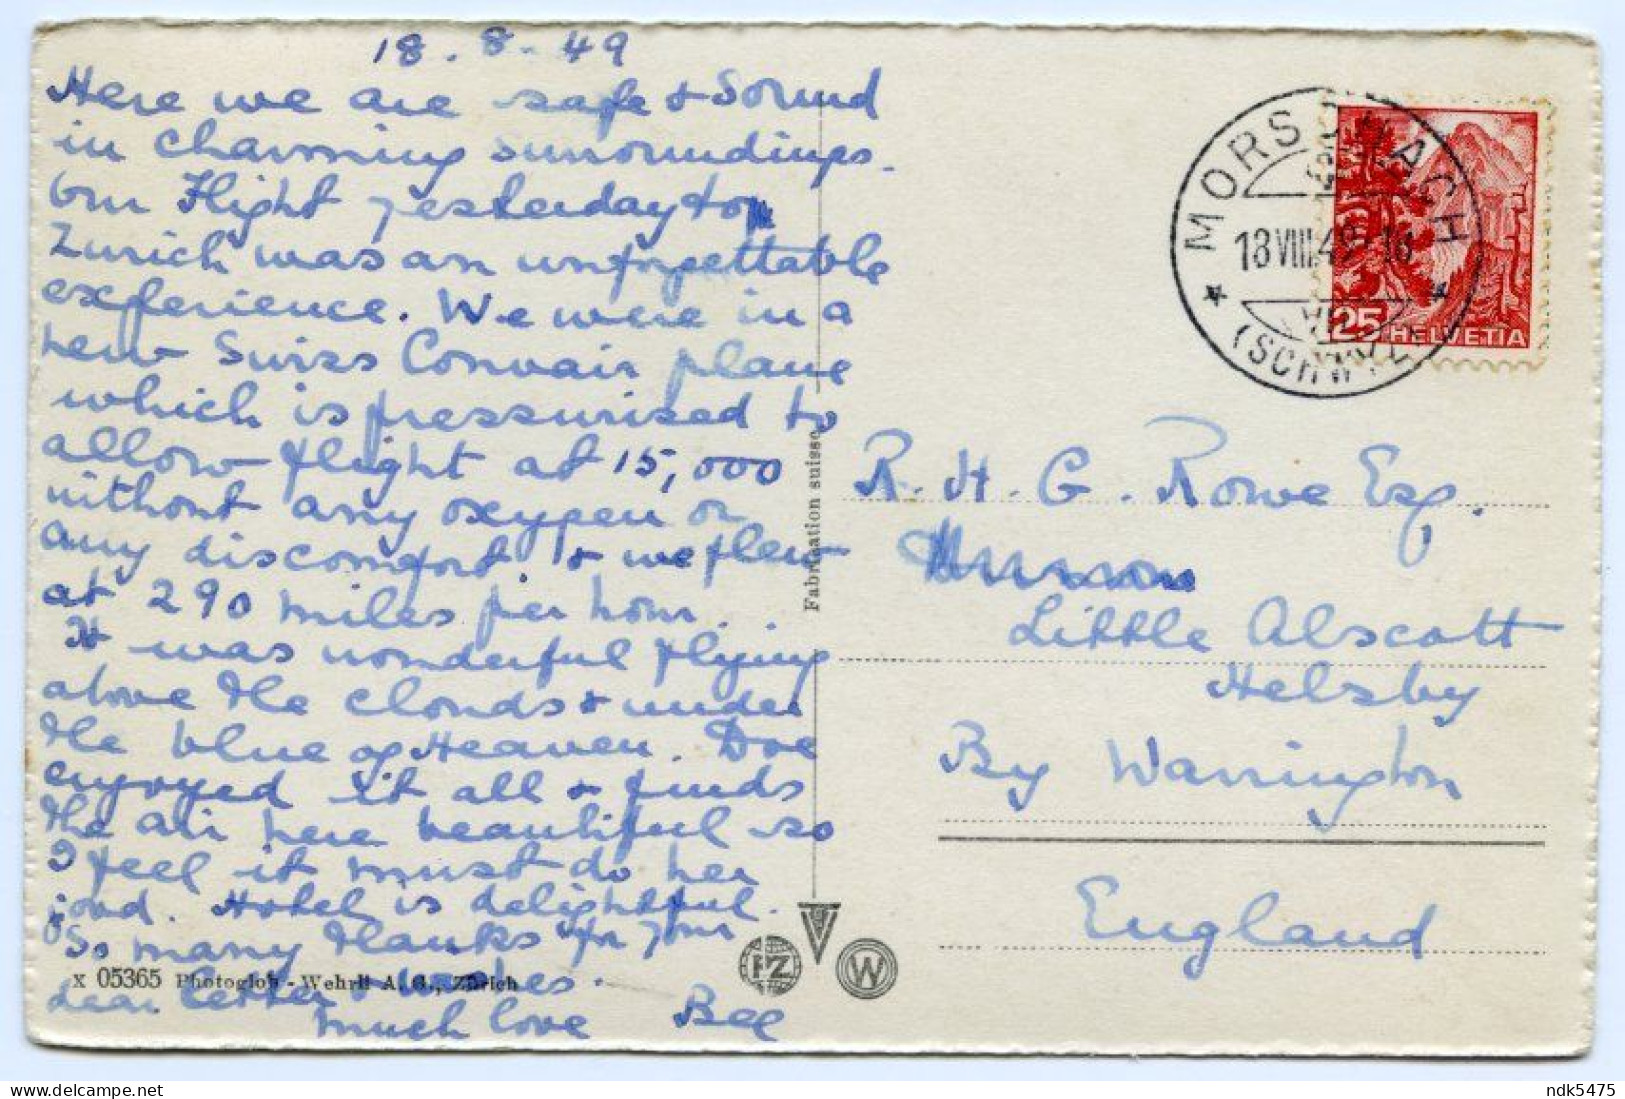 18.8.49
Here we are safe & sound
in charming surroundings.
Our Flight yesterday to
Zurich was an unforgettable
experience. We were in a
new Swiss Convair plane
which is pressurised to
allow flight at 15,000
without any oxygen or
any discomfort & we flew
at 290 miles per hour.
It was wonderful flying
above the clouds & under
the blue of Heaven. Dve
enjoyed it all & finds
the air here beautiful so
I feel it must do her
good. Hotel is delightful.
So many thanks for your
dear letter & wishes.
much love Bee
x 05365 Photoglob - Wehrli A. G., Zürich
Fabrication suisse
PZ
W
MORSCHACH
18 VIII.49-16
(SCHWYZ)
25 HELVETIA
R. H. G. Rowe Esq.
Little Alscott
Helsby
By Warrington
England
ndk5475